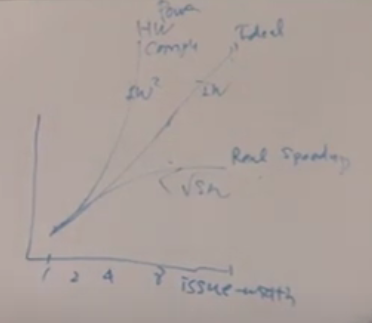 Power
HW
Comple
Ideal
IW²
IW
Real Speedup
√IW
1 2 4 8 issue-width